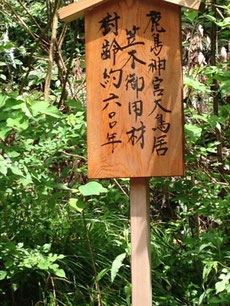 鹿島神宮大鳥居
笠木御用材
樹齢約六〇〇年